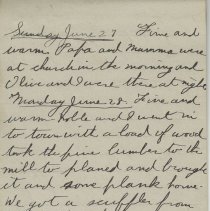 Sunday June 27 Fine and
warm Papa and Mamma were
at church in the morning and
Olive and I were there at night
Monday June 28. Fine and
warm Noble and I went in
to town with a load of wood
took the pine lumber to the
mill to planed and brough
it and some plank home
We got a scuffler from